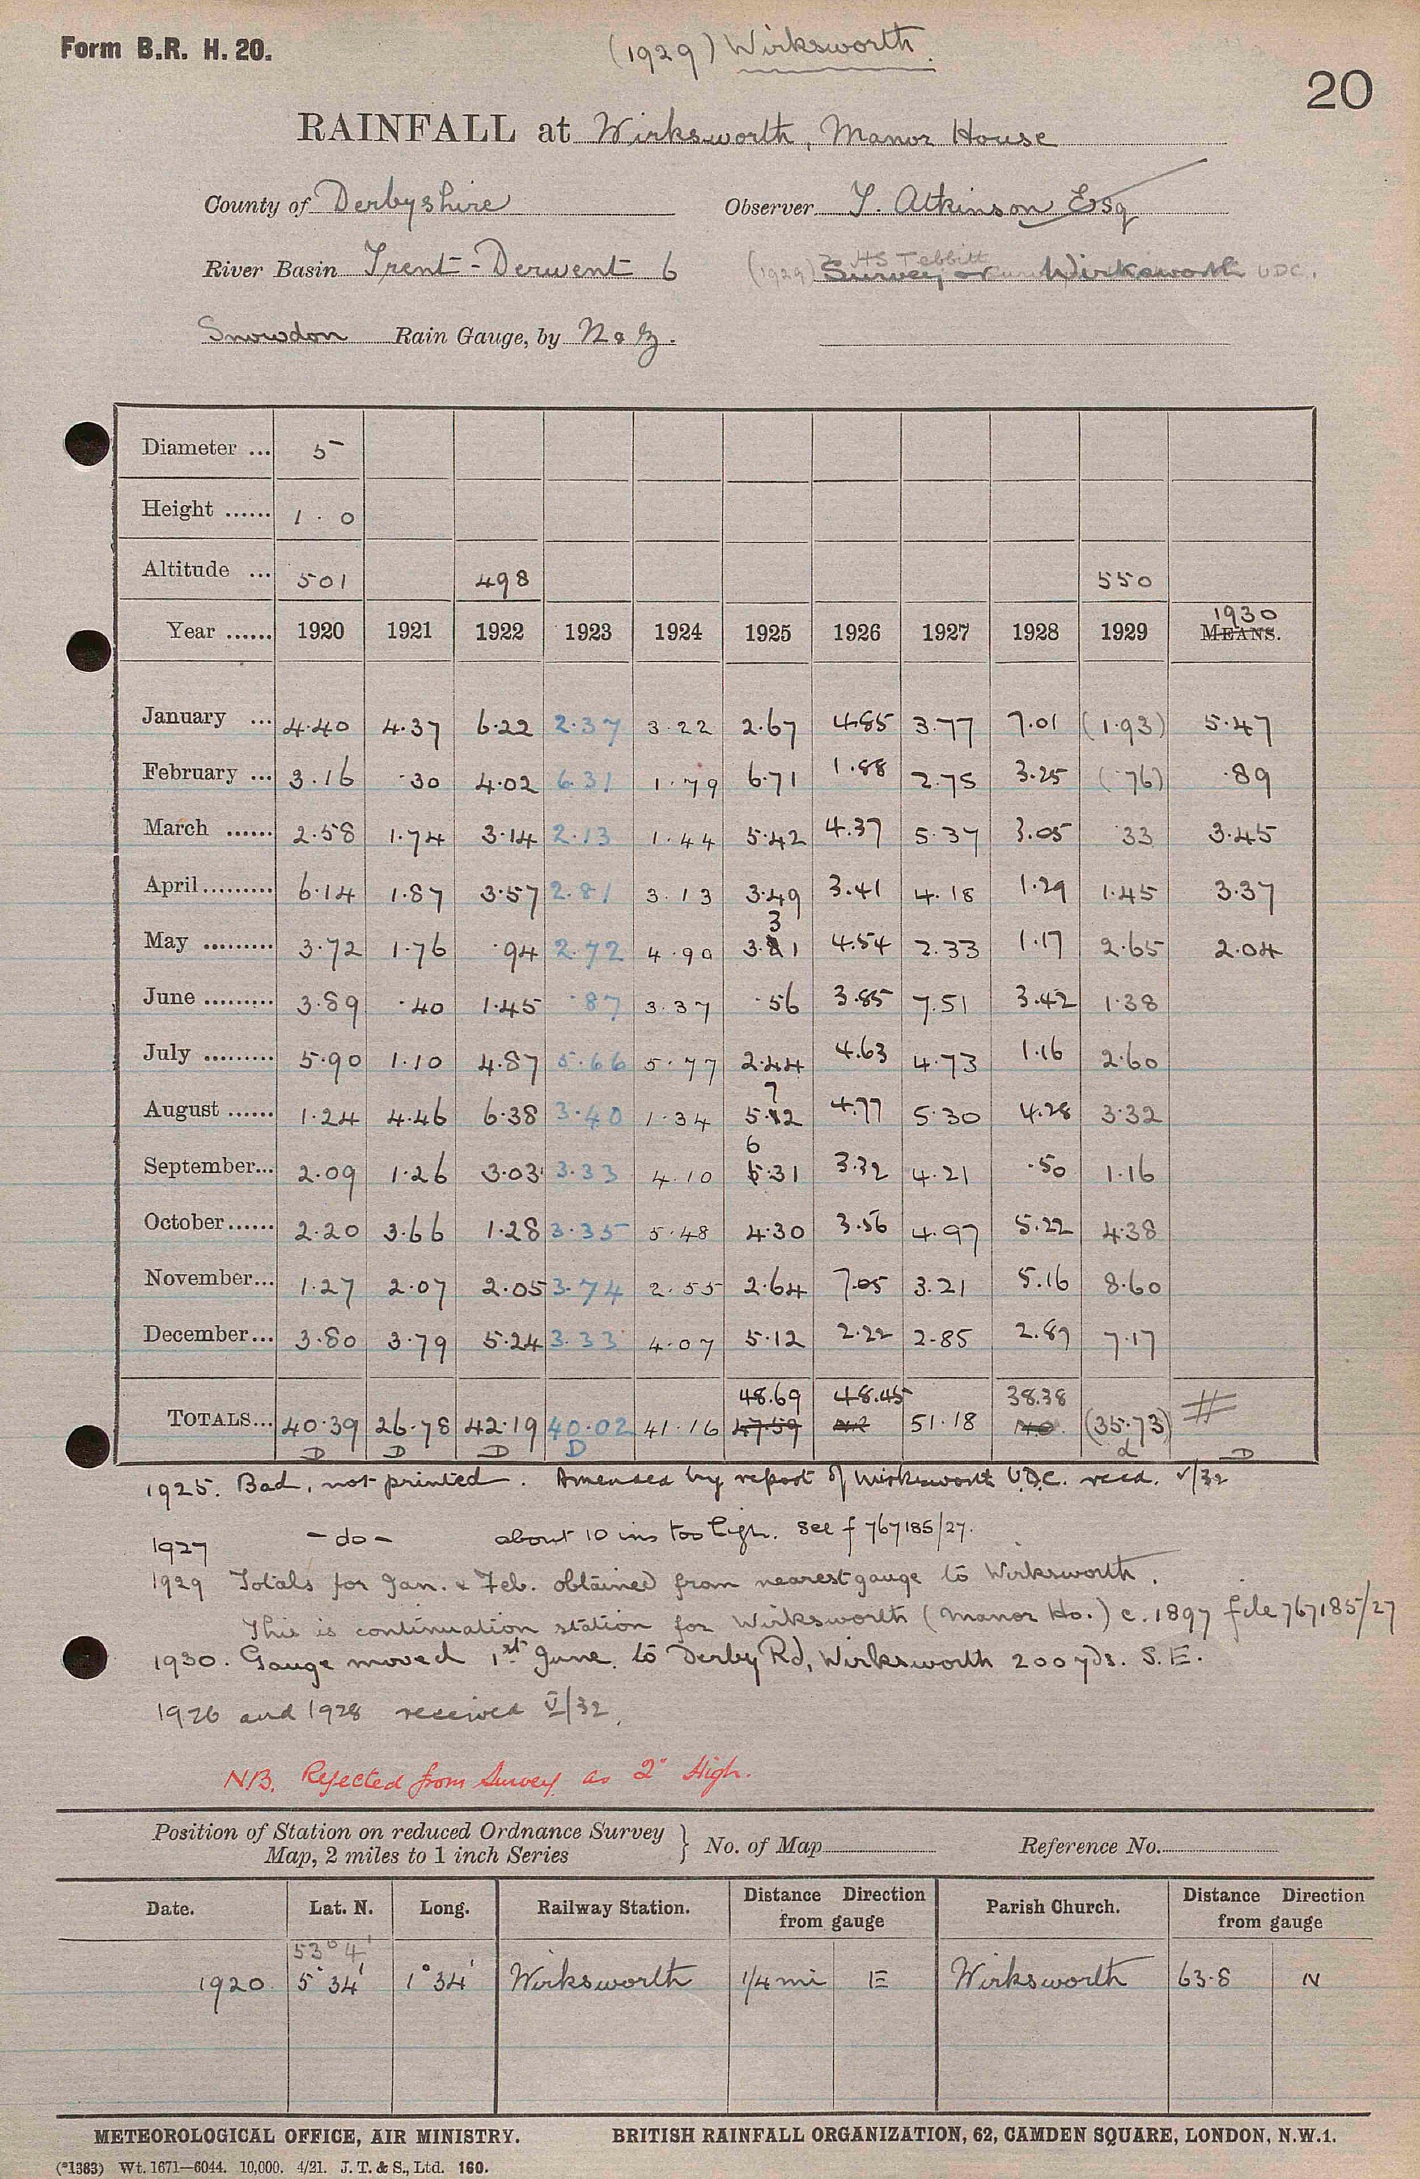 Form B.R. H. 20.
(1929) Wirksworth.
20
RAINFALL at Wirksworth, Manor House
County of Derbyshire Observer T. Atkinson Esq
River Basin Trent - Derwent 6 (1929) HS Tebbitt
Surveyor Wirksworth UDC.
Snowdon Rain Gauge, by N & Z.
Diameter ... 5
Height ...... 1 . 0
Altitude ... 501 498 550
Year ...... 1920 1921 1922 1923 1924 1925 1926 1927 1928 1929 1930 MEANS.
January ... 4.40 4.37 6.22 2.37 3.22 2.67 4.85 3.77 7.01 (1.93) 5.47
February ... 3.16 .30 4.02 6.31 1.79 6.71 1.88 2.75 3.25 (.76) .89
March ...... 2.58 1.74 3.14 2.13 1.44 5.42 4.37 5.37 3.05 .33 3.45
April ......... 6.14 1.87 3.57 2.81 3.13 3.49 3.41 4.18 1.29 1.45 3.37
May ......... 3.72 1.76 .94 2.72 4.90 3.31 4.54 2.33 1.17 2.65 2.04
June ......... 3.89 .40 1.45 .87 3.37 .56 3.85 7.51 3.42 1.38
July ......... 5.90 1.10 4.87 5.66 5.77 2.44 4.63 4.73 1.16 2.60
August ...... 1.24 4.46 6.38 3.40 1.34 5.72 4.77 5.30 4.28 3.32
September... 2.09 1.26 3.03 3.33 4.10 6.31 3.32 4.21 .50 1.16
October...... 2.20 3.66 1.28 3.35 5.48 4.30 3.56 4.97 5.22 4.38
November... 1.27 2.07 2.05 3.74 2.55 2.64 7.05 3.21 5.16 8.60
December... 3.80 3.79 5.24 3.33 4.07 5.12 2.22 2.85 2.87 7.17
48.69 48.45 38.38
TOTALS... 40.39 26.78 42.19 40.02 41.16 47.59 51.18 (35.73) #
D D D D d D
1925. Bad, not printed. Amended by report of Wirksworth U.D.C. recd. V/32
1927 - do - about 10 ins too high. see f 767185/27.
1929 Totals for Jan. & Feb. obtained from nearest gauge to Wirksworth.
This is continuation station for Wirksworth (Manor Ho.) c. 1897 file 767185/27
1930. Gauge moved 1st June. to Derby Rd, Wirksworth 200 yds. S.E.
1926 and 1928 received V/32.
N.B. Rejected from Survey as 2" High.
Position of Station on reduced Ordnance Survey
Map, 2 miles to 1 inch Series } No. of Map Reference No.
Date. Lat. N. Long. Railway Station. Distance Direction from gauge Parish Church. Distance Direction from gauge
53° 4'
1920. 5° 34' 1° 34' Wirksworth 1/4 mi E Wirksworth 63.8 N
METEOROLOGICAL OFFICE, AIR MINISTRY. BRITISH RAINFALL ORGANIZATION, 62, CAMDEN SQUARE, LONDON, N.W.1.
(*1383) Wt. 1671—6044. 10,000. 4/21. J. T. & S., Ltd. 160.